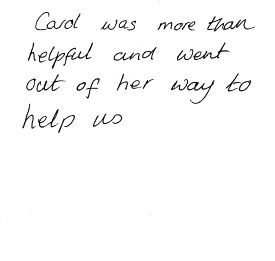 Carol was more than
helpful and went
out of her way to
help us